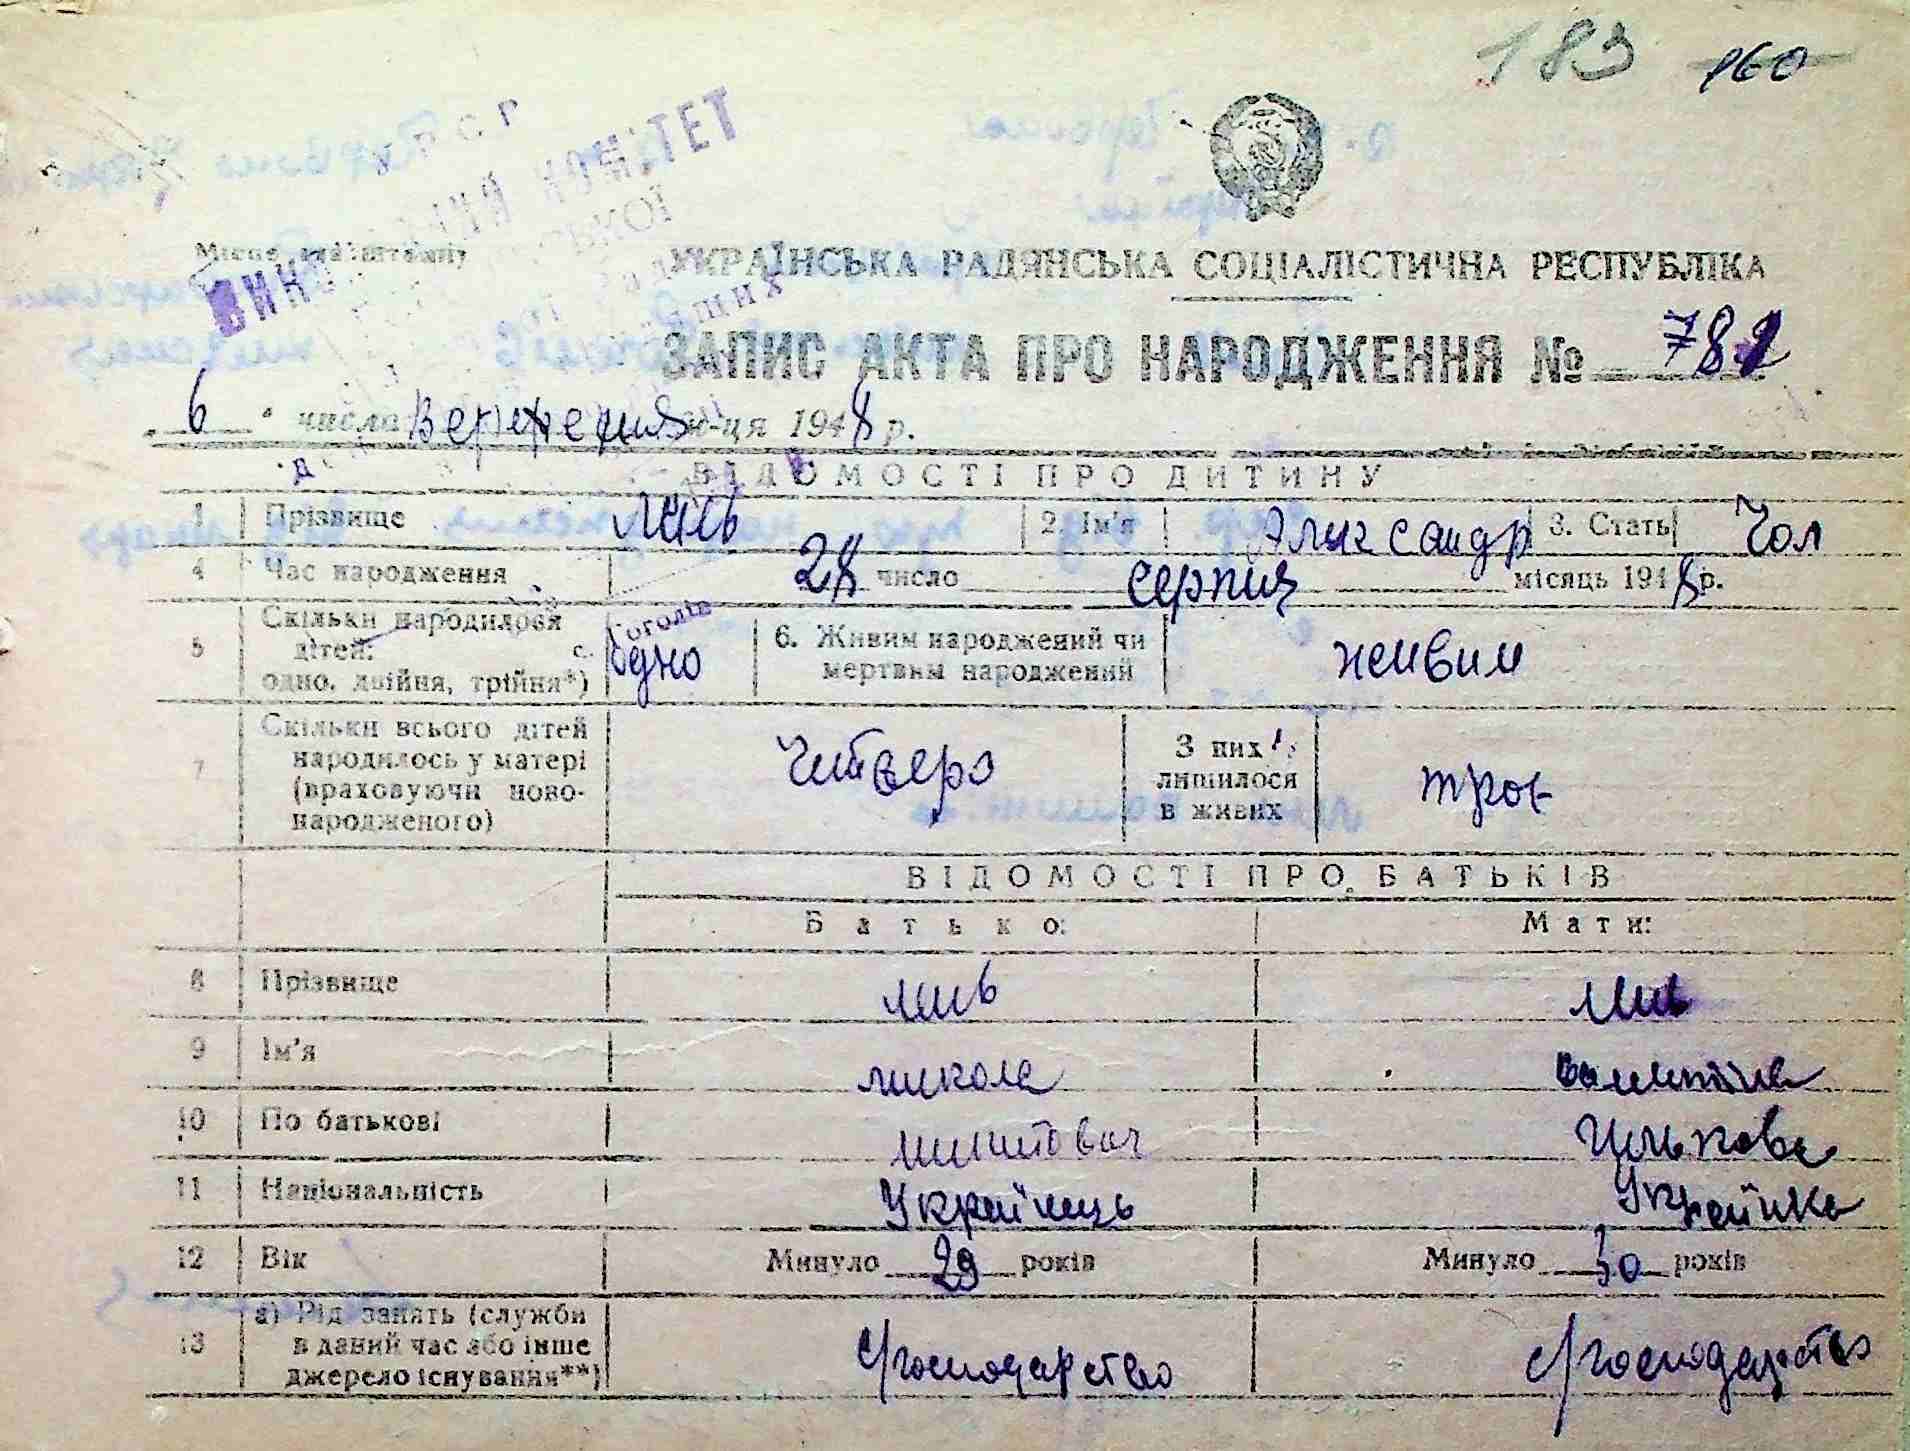 183 160
УРСР
КОМІТЕТ
Місце для штампу
УКРАЇНСЬКА РАДЯНСЬКА СОЦІАЛІСТИЧНА РЕСПУБЛІКА
ЗАПИС АКТА ПРО НАРОДЖЕННЯ № 782
6 числа Вересня м-ця 1948 р.
ВІДОМОСТІ ПРО ДИТИНУ
1 Прізвище Линь 2. Ім'я Александр 3. Стать Чол
4 Час народження 28 число серпня місяць 1948 р.
5 Скільки народилося дітей: одно, двійня, трійня*) одно 6. Живим народжений чи мертвим народжений живим
с. Гоголів
7 Скільки всього дітей народилось у матері (враховуючи ново-народженого) Читверо З них лишилося в живих троє
ВІДОМОСТІ ПРО БАТЬКІВ
Батько: Мати:
8 Прізвище Линь Линь
9 Ім'я Микола Валентина
10 По батькові
11 Національність Українець Українка
12 Вік Минуло 29 років Минуло 30 років
13 а) Рід занять (служби в даний час або інше джерело існування**) с/господарство с/господарство